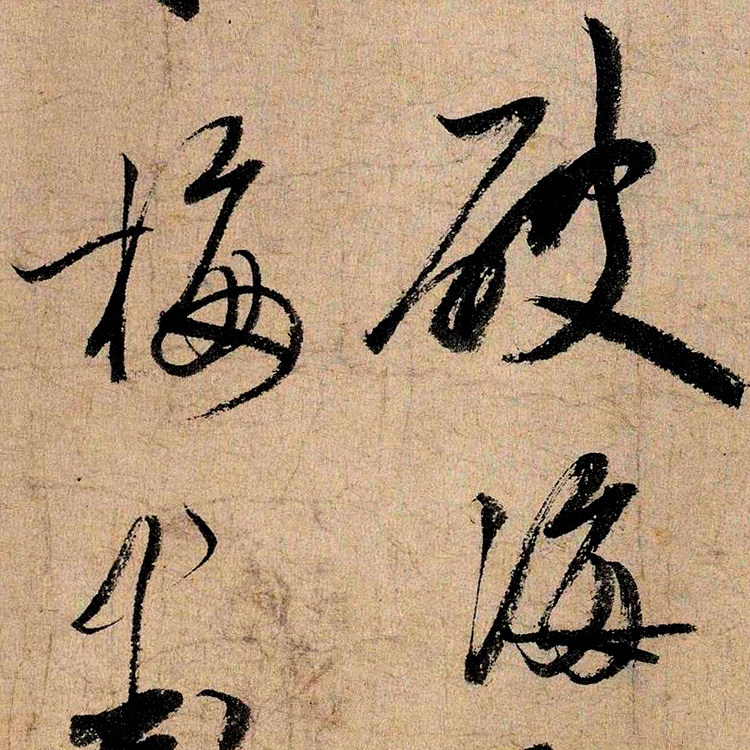 破海
梅